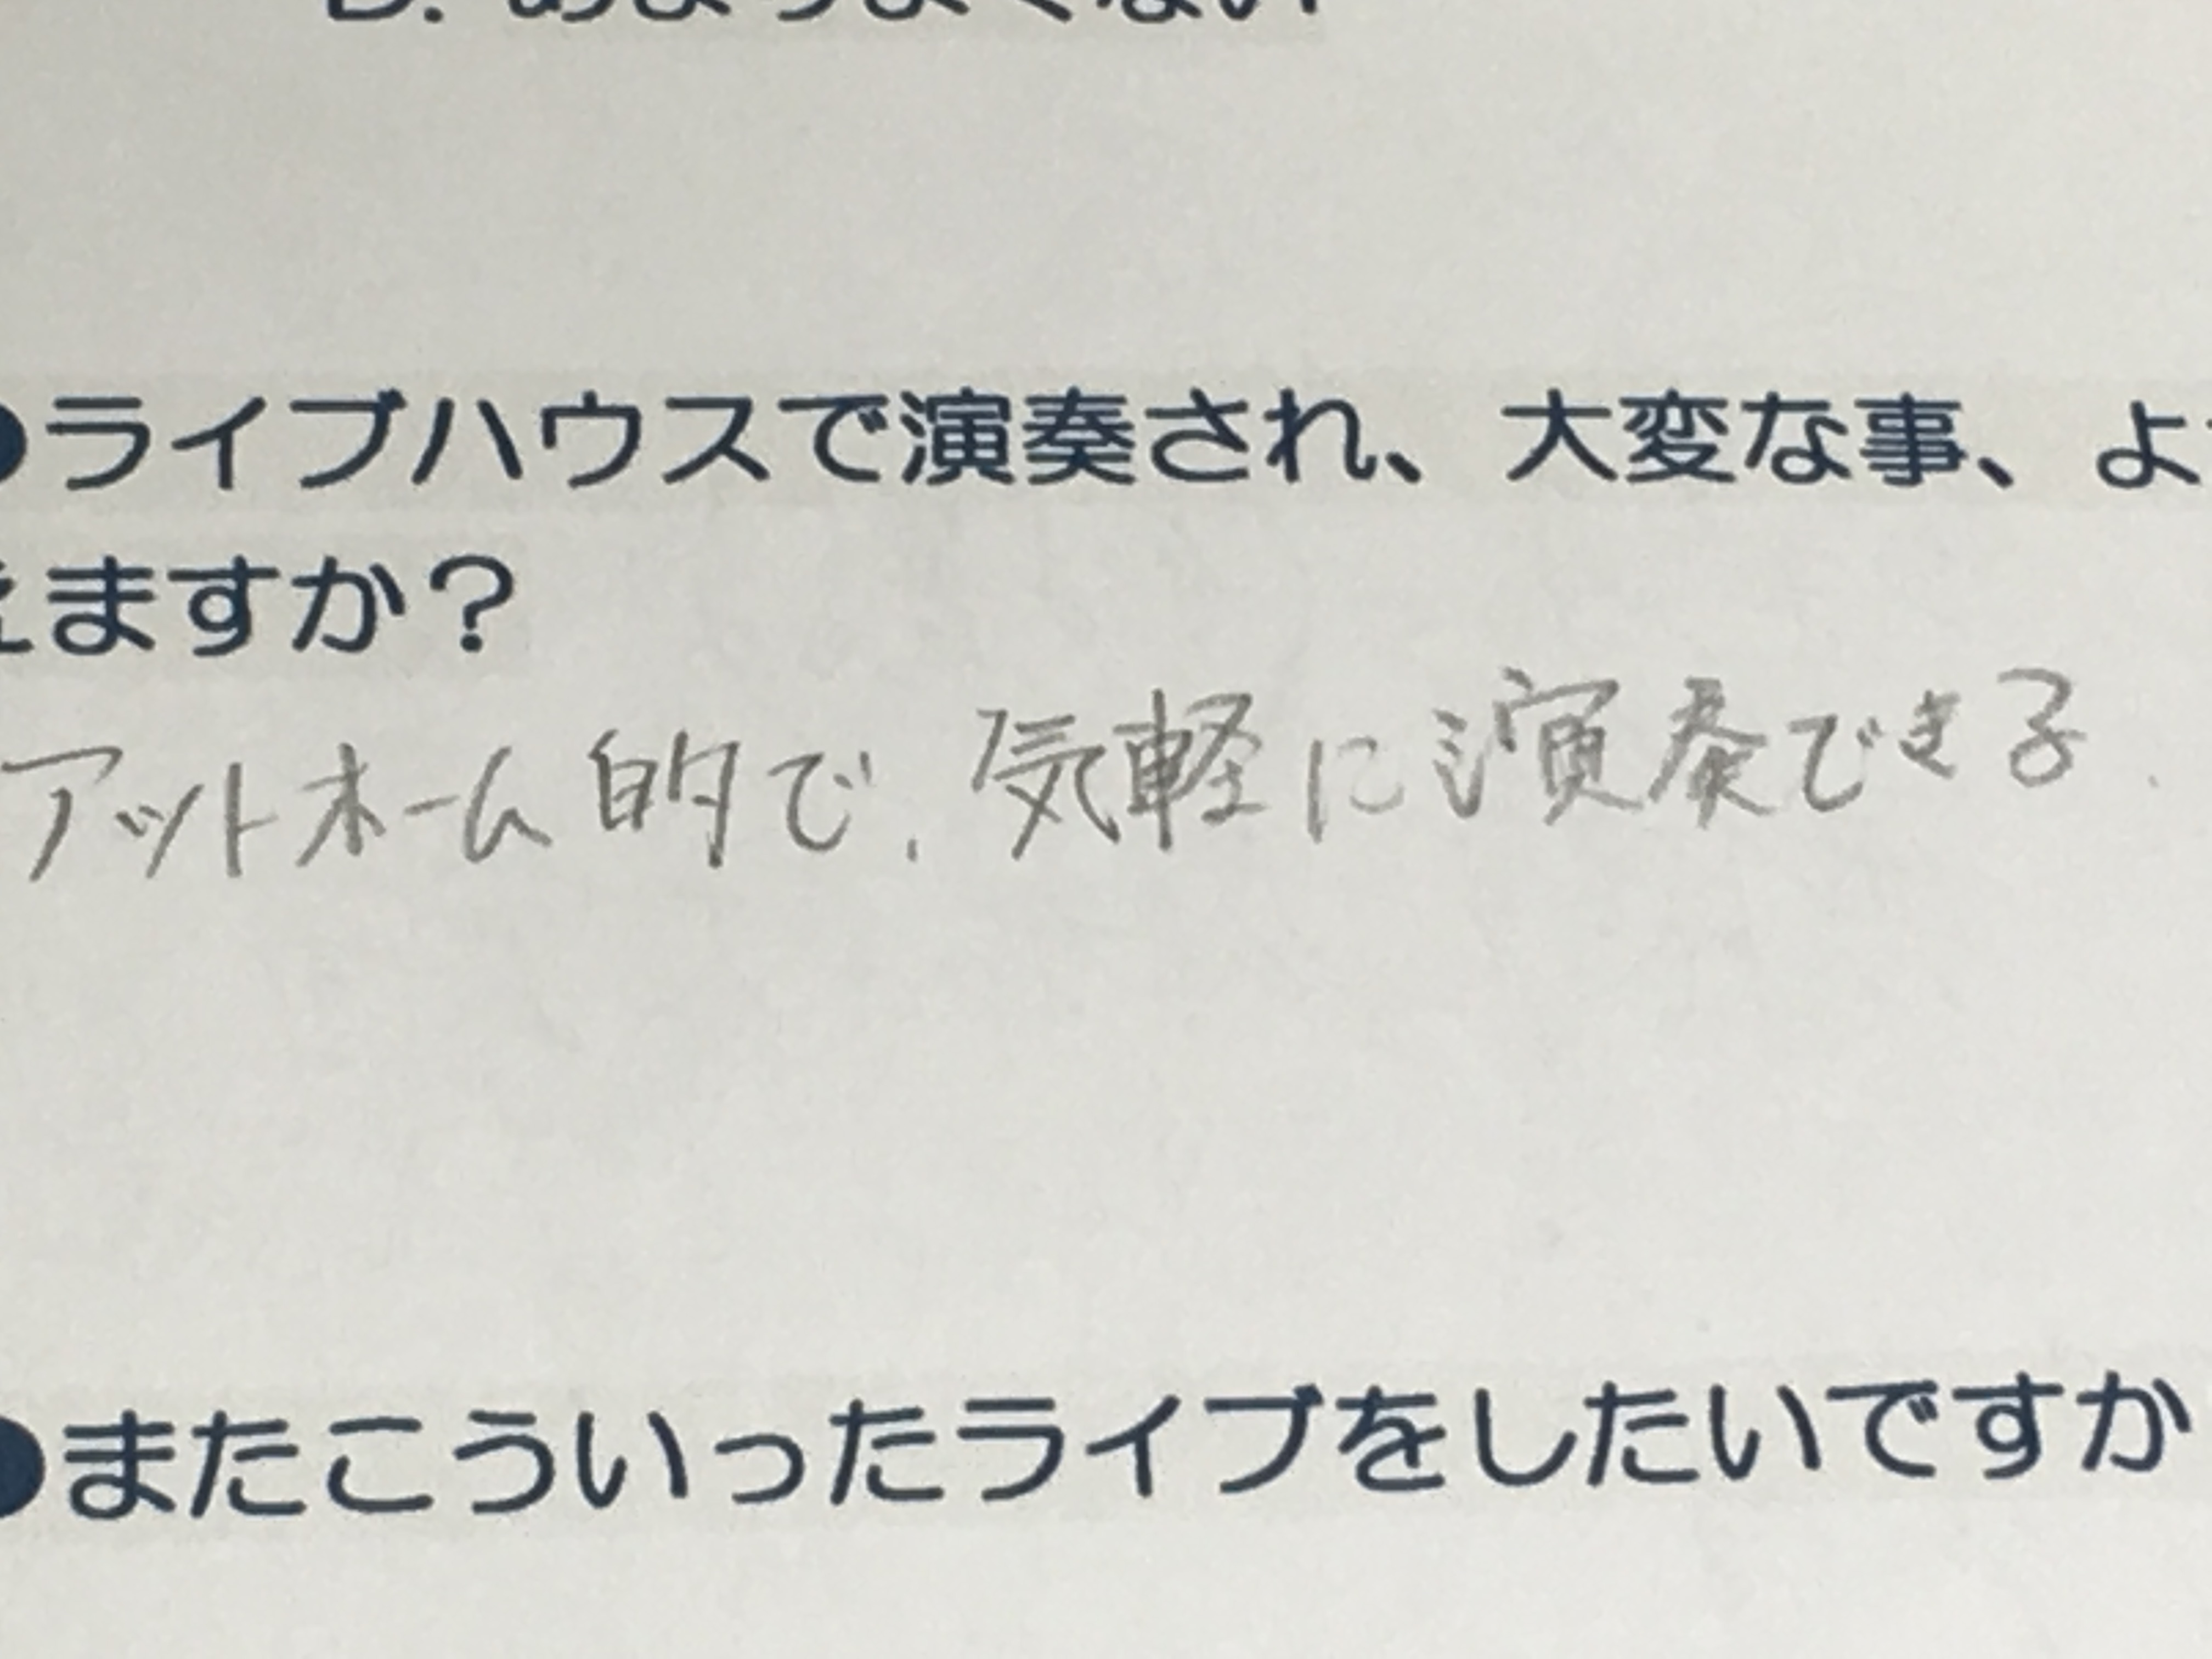 D. あまりよくない
●ライブハウスで演奏され、大変な事、よ
えますか？
アットホーム的で、気軽に演奏できる.
●またこういったライブをしたいですか